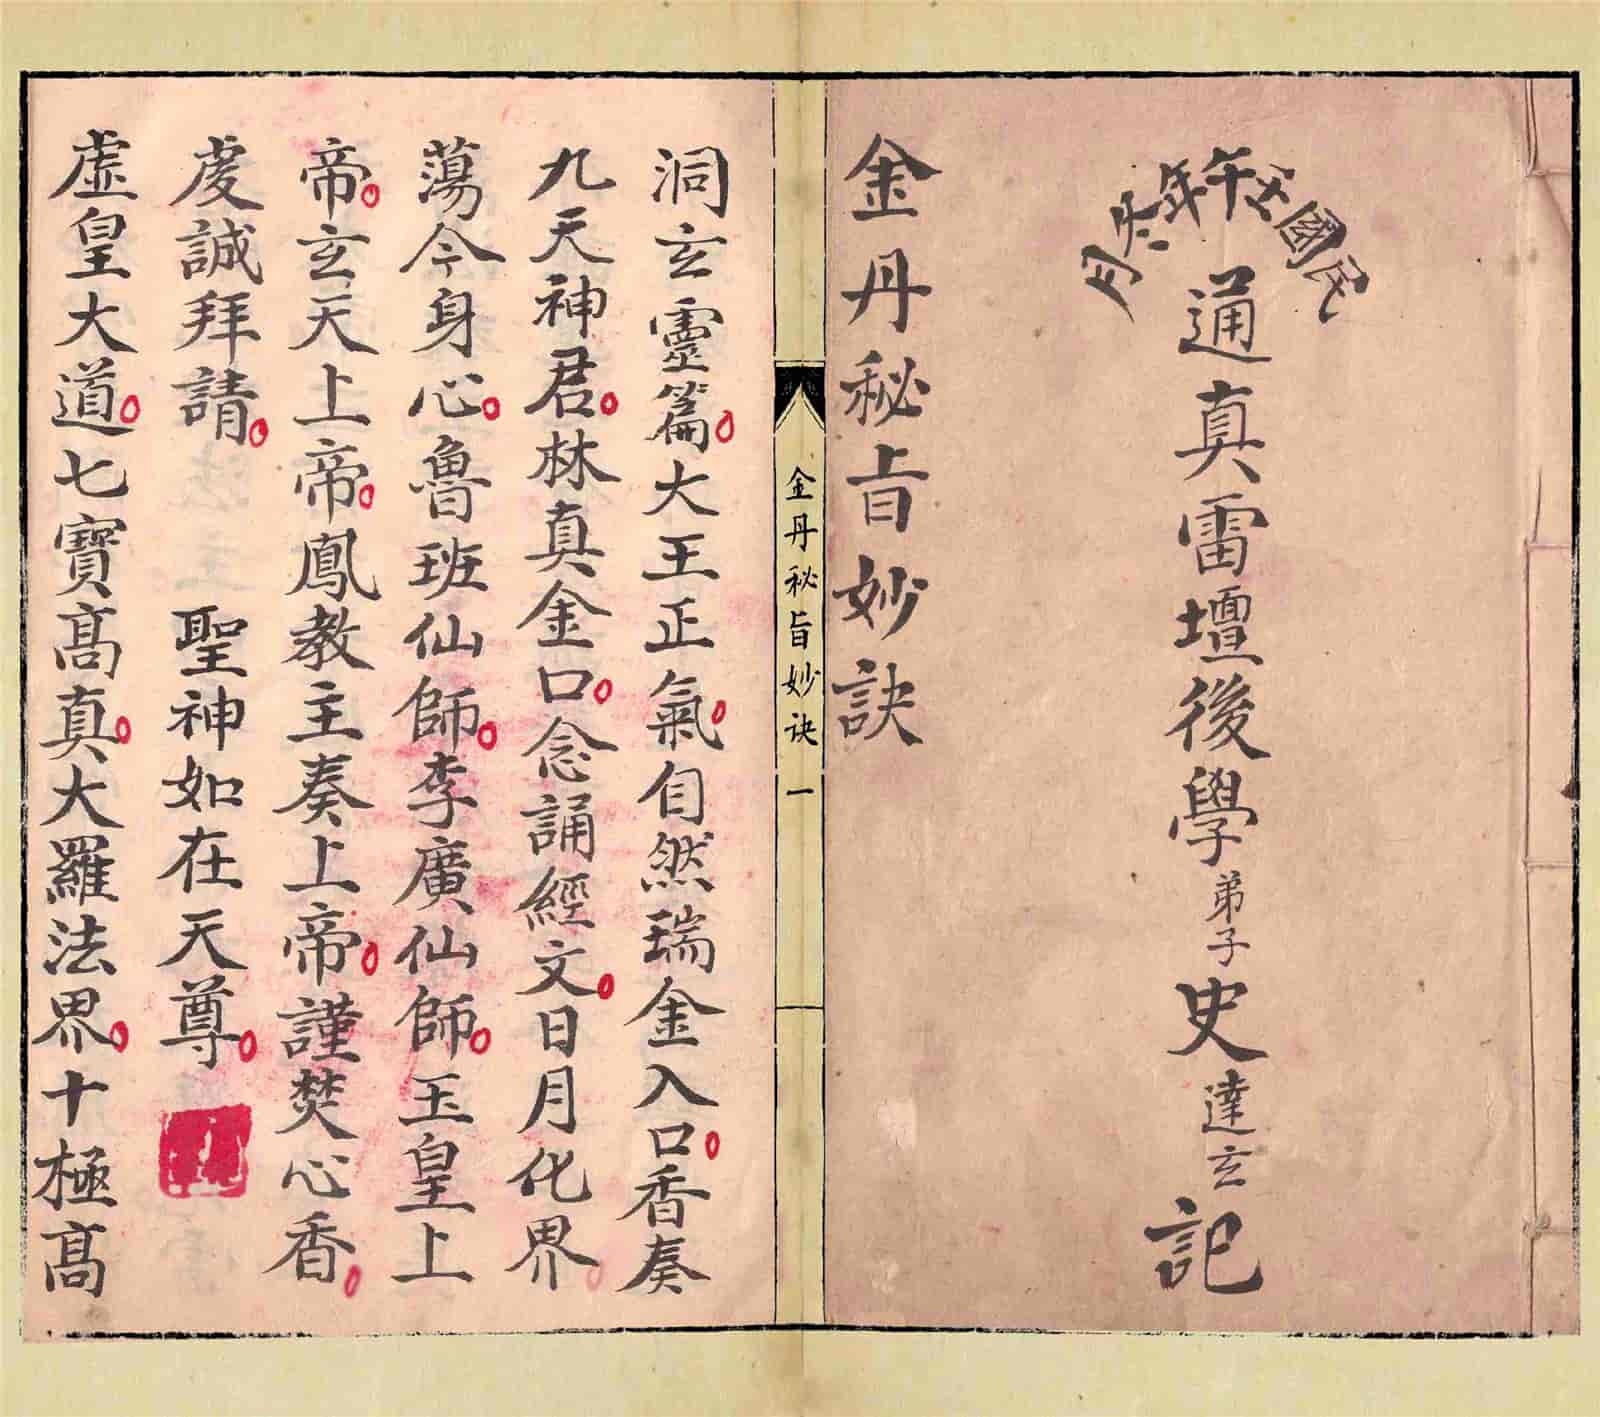 民國壬午年月
通真雷壇後學弟子史達玄記
金丹秘旨妙訣
金丹秘旨妙诀 一
洞玄靈篇大王正氣自然瑞金入口香奏
九天神君林真金口念誦經文日月化界
蕩今身心魯班仙師李廣仙師玉皇上
帝玄天上帝鳳教主奏上帝謹焚心香
虔誠拜請 聖神如在天尊
虛皇大道七寶高真大羅法界十極高